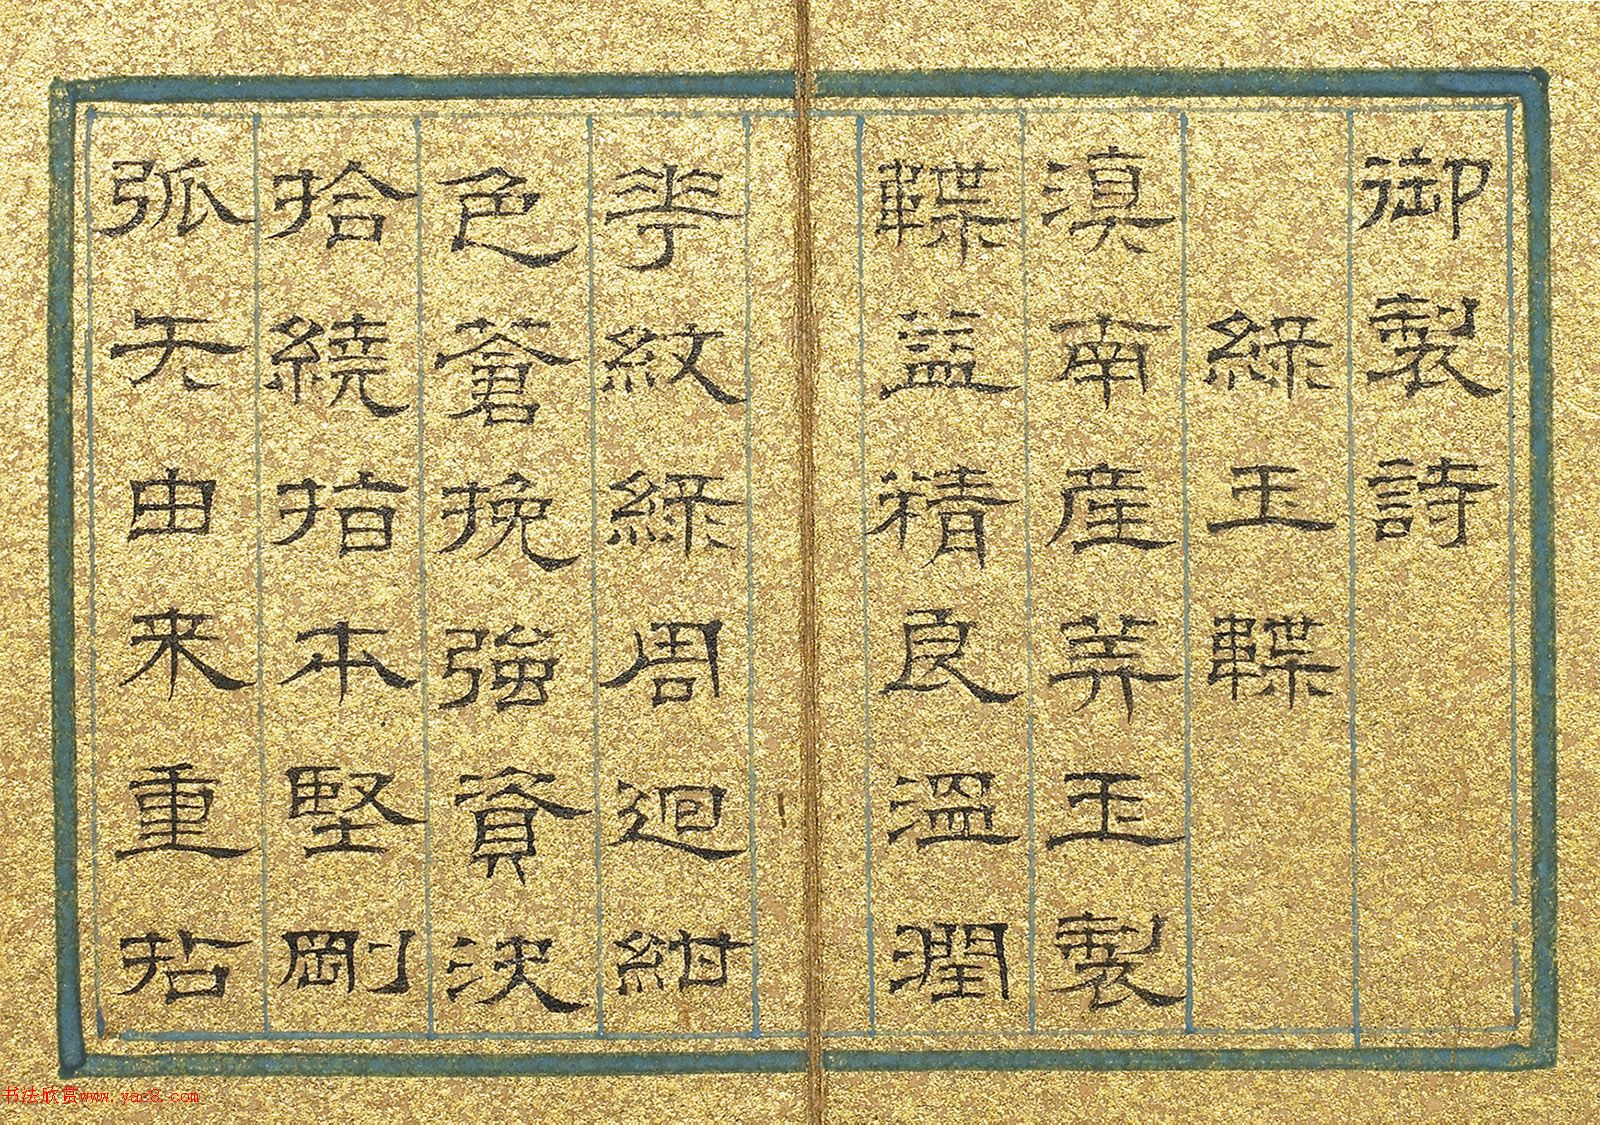 御製詩
綠玉韘
滇南産美玉製
韘益精良溫潤
華紋綠周迴紺
色蒼挽強資決
拾繞指本堅剛
弧矢由来重拈
书法欣赏www.yac8.com